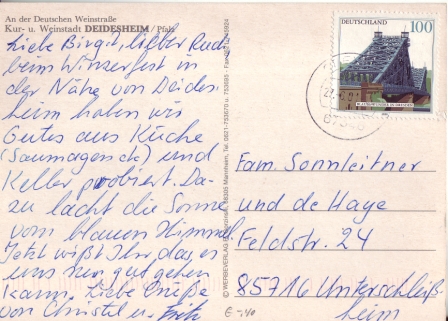 An der Deutschen Weinstraße
Kur- u. Weinstadt DEIDESHEIM / Pfalz
Liebe Birgit, lieber Rudi
beim Winzerfest in
der Nähe von Deides-
heim haben wir
Gutes aus Küche
(Saumagen etc) und
Keller probiert. Da-
zu lacht die Sonne
vom blauen Himmel
Jetzt wißt Ihr, das es
uns nur gut gehen
kann. Liebe Grüße
von Christel u. Fritz
DEUTSCHLAND
100
Fam. Sonnleitner
und de Haye
Feldstr. 24
85716 Unterschleiß-
heim
€ -,40